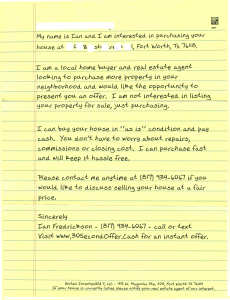 My name is Ian and I am interested in purchasing your
house at , Fort Worth, TX 76115.
I am a local home buyer and real estate agent
looking to purchase more property in your
neighborhood and would like the opportunity to
present you an offer. I am not interested in listing
your property for sale, just purchasing.
I can buy your house in "as is" condition and pay
cash. You don't have to worry about repairs,
commissions or closing cost. I can purchase fast
and will keep it hassle free.
Please contact me anytime at (817) 934-6067 if you
would like to discuss selling your house at a fair
price.
Sincerely
Ian Fredrickson - (817) 934-6067 - call or text
Visit www.30SecondOffer.Cash for an instant offer.
If your home is currently listed please notify your real estate agent of my interest.